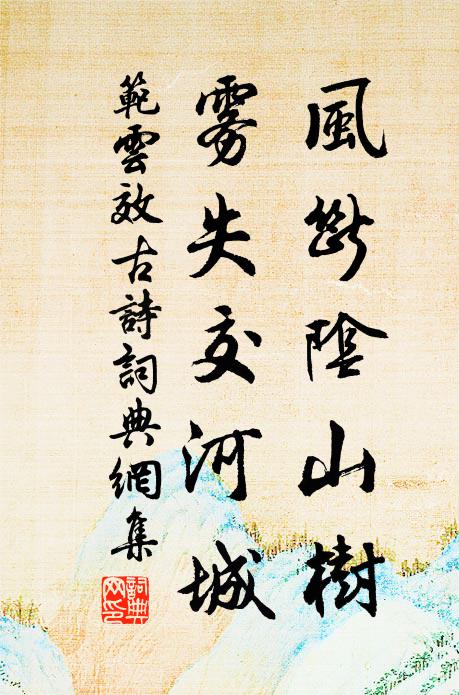 風斷陰山樹
霧失交河城
範雲效古詩詞典網集
詞典
文印